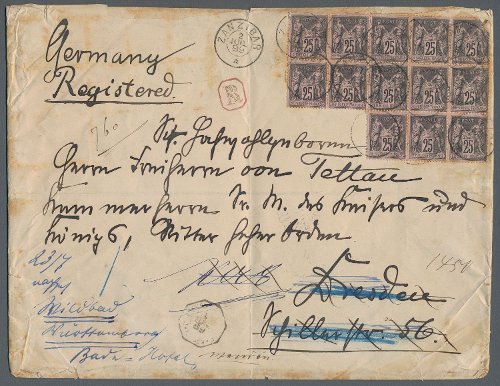 Germany
Registered
ZANZIBAR
2
95
R
25 25 25 25 25
25 25 25 25 25
25 25 25
760
Sr. Hochwohlgeboren
Herrn Freiherrn von Tettau
Kammerherrn Sr. M. des Kaisers und
Königs, Ritter hoher Orden.
Dresden
Schillerstr 56.
1451
23/7
nach
Wildbad
Württemberg
Bade-Hotel